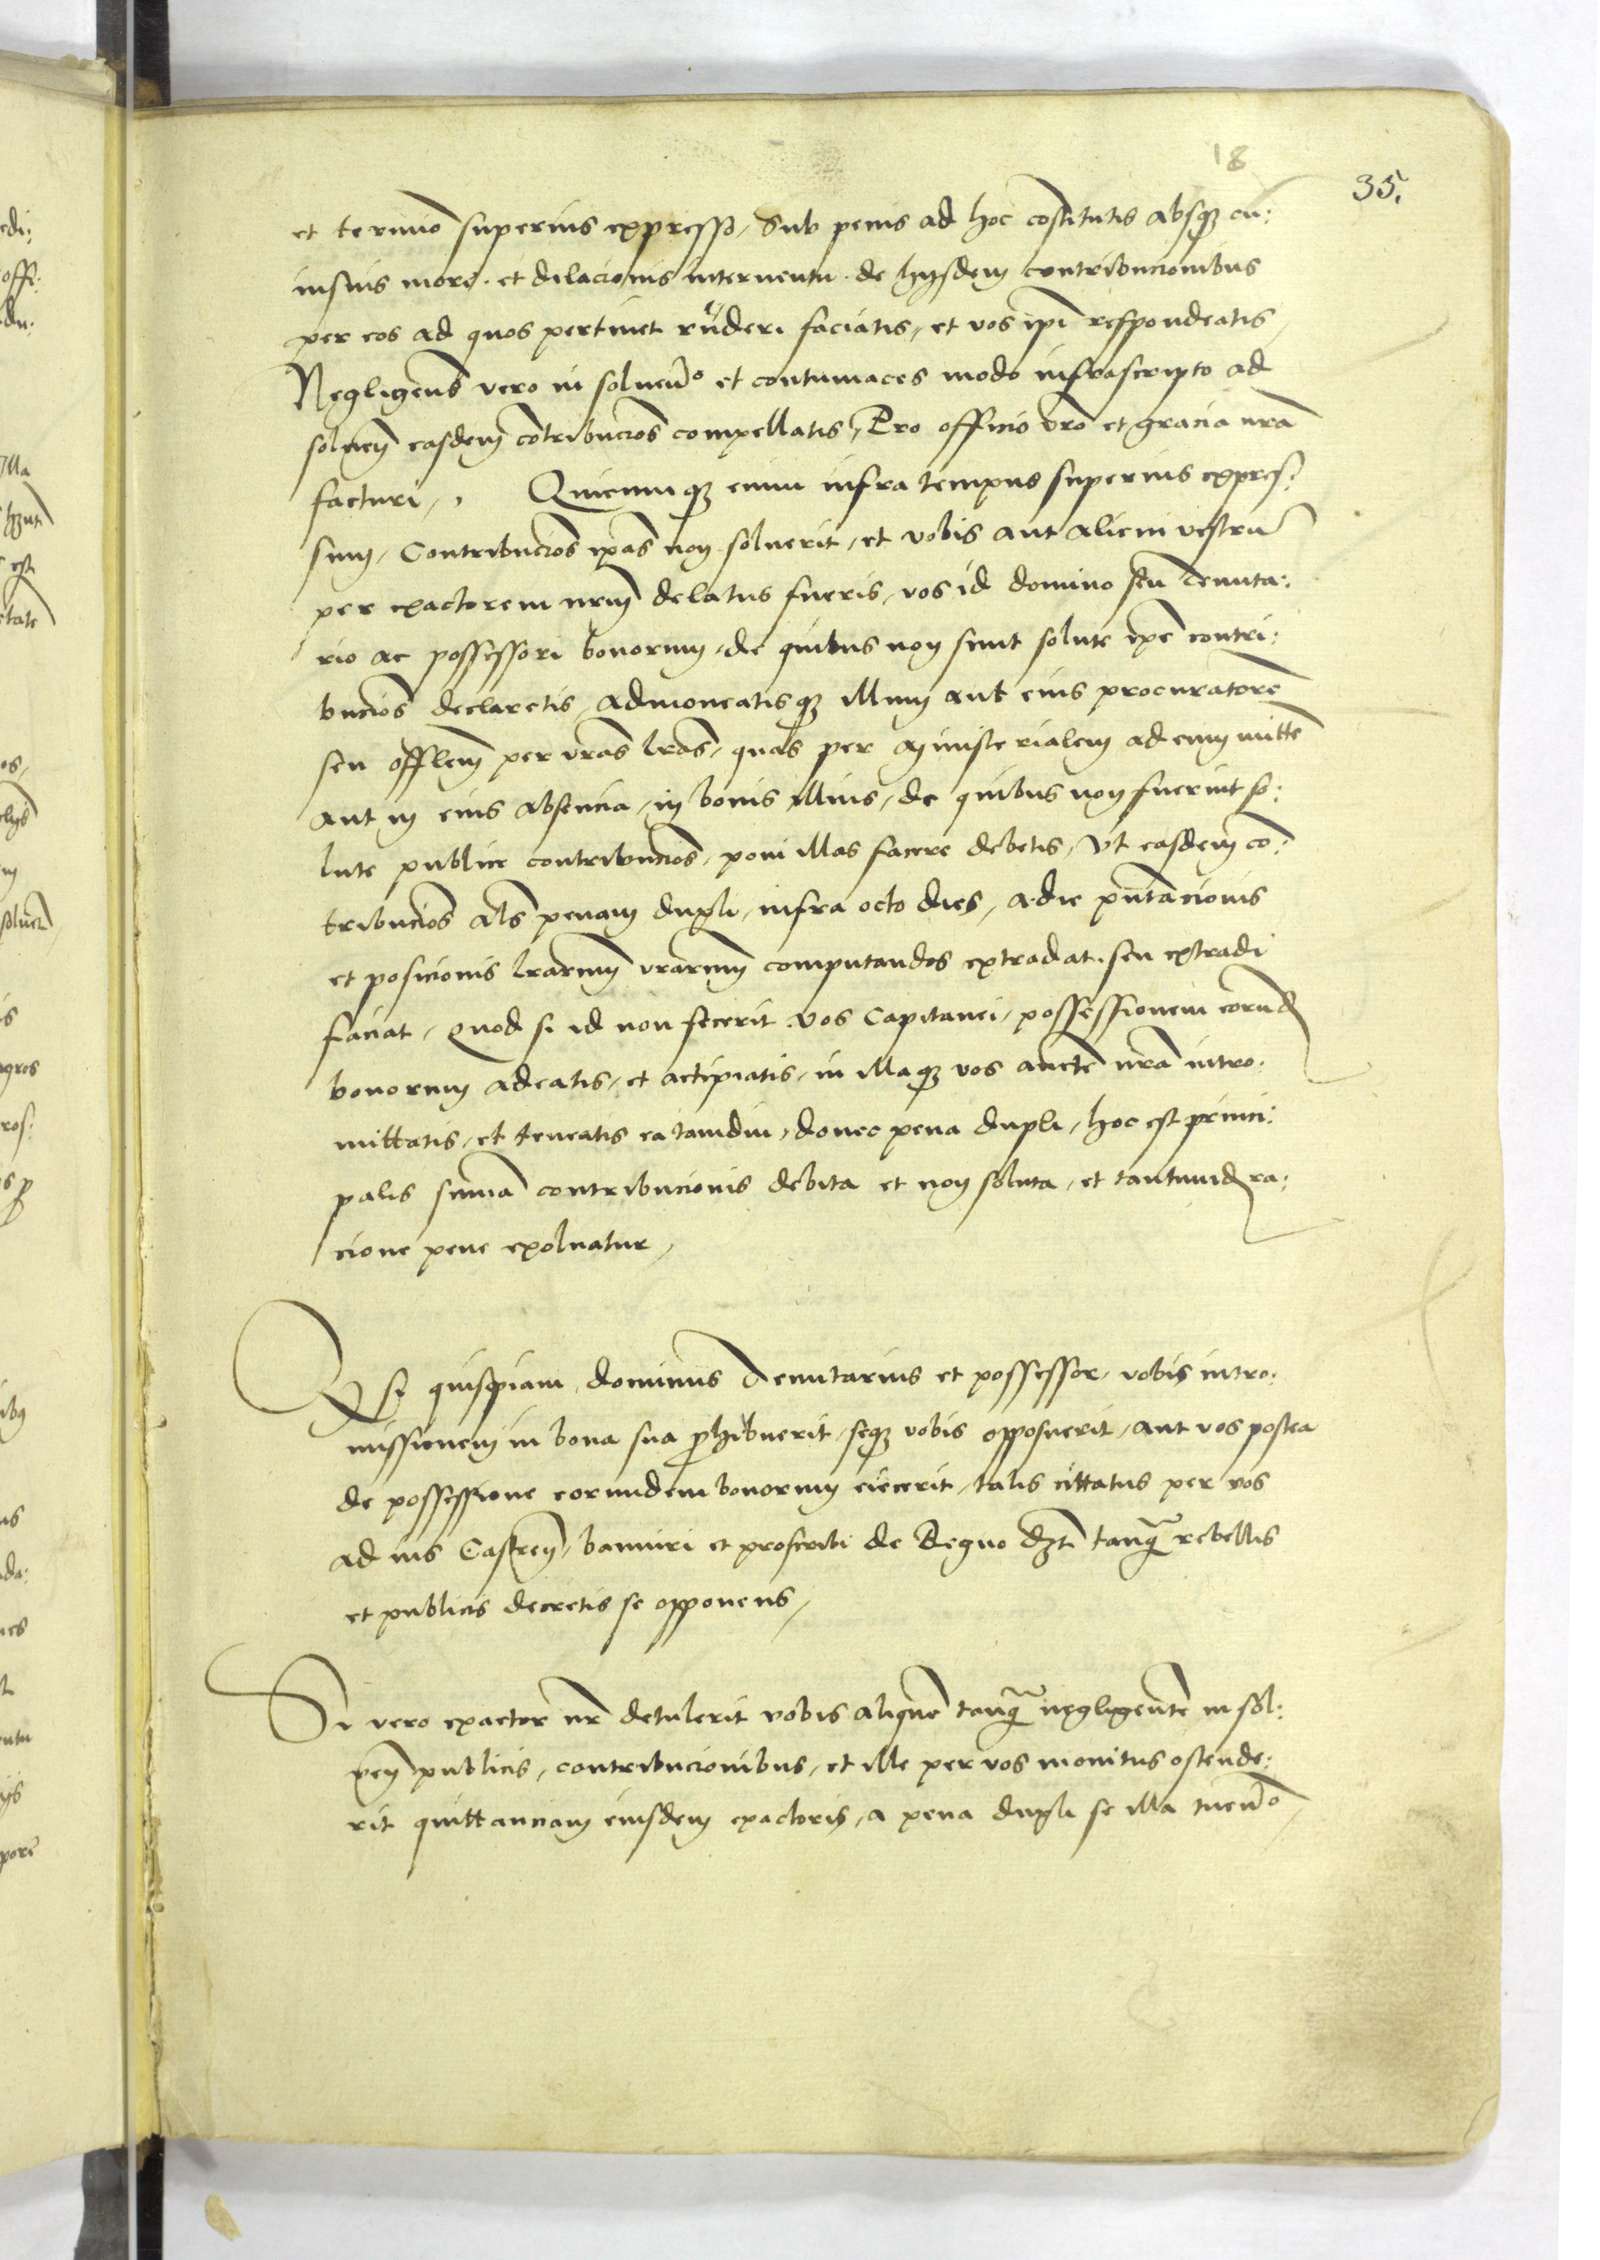 18
35.
et termino superius expresso, Sub penis ad hoc constitutis absq3 cu:
iusuis more et dilacionis interuentu de hijsdem contribucionibus
per eos ad quos pertinet rñderi faciatis, et vos ipi respondeatis,
Negligentes vero in soluendo et contumaces modo infrascripto ad
soluen easdem contribuciones compellatis, Pro officio vro et gracia nra
facturi, Quicumq3 enim infra tempus superius expres:
sum, Contribuciones ipas non soluerit, et vobis aut alicui vestrum
per exactorem nrum delatus fueris, vos id domino seu tenuta:
rio ac possessori bonorum, de quibus non sunt solute ipe contri:
buciones declaretis, admoneatisq3 illum aut eius procuratorem
seu offlem per vras lras, quas per ministerialem ad eum mitten
aut in eius absencia, in bonis illius, de quibus non fuerint so:
lute publice contribuciones, poni illas facere debetis, Vt easdem con
tribuciones als penam dupli, infra octo dies, a die pntacionis
et posicionis lrarum vrarum computandos extradat, seu extradi
faciat, Quod si id non fecerit vos Capitanei, possessionem eorund
bonorum adeatis, et accipiatis, in illaq3 vos aucte nra intro:
mittatis, et teneatis ea tamdiu, donec pena dupli, hoc est princi:
palis summa contribucionis debita et non soluta, et tantumd ra:
cione pene exoluatur,
Q si quispiam, dominus Tenutarius et possessor, vobis intro:
missionem in bona sua prohibuerit, seq3 vobis opposuerit, aut vos postea
de possessione eorundem bonorum eiecerit, talis cittatus per vos
ad ius Castren, banniri et proscribi de Regno dzt tanq rebellis
et publicis decretis se opponens,
Si vero exactor nr detulerit vobis aliquem tanq negligentem in sol:
uen publicis, contribucionibus, et ille per vos monitus ostende:
rit quittanciam eiusdem exactoris, a pena dupli se illa tuendo,